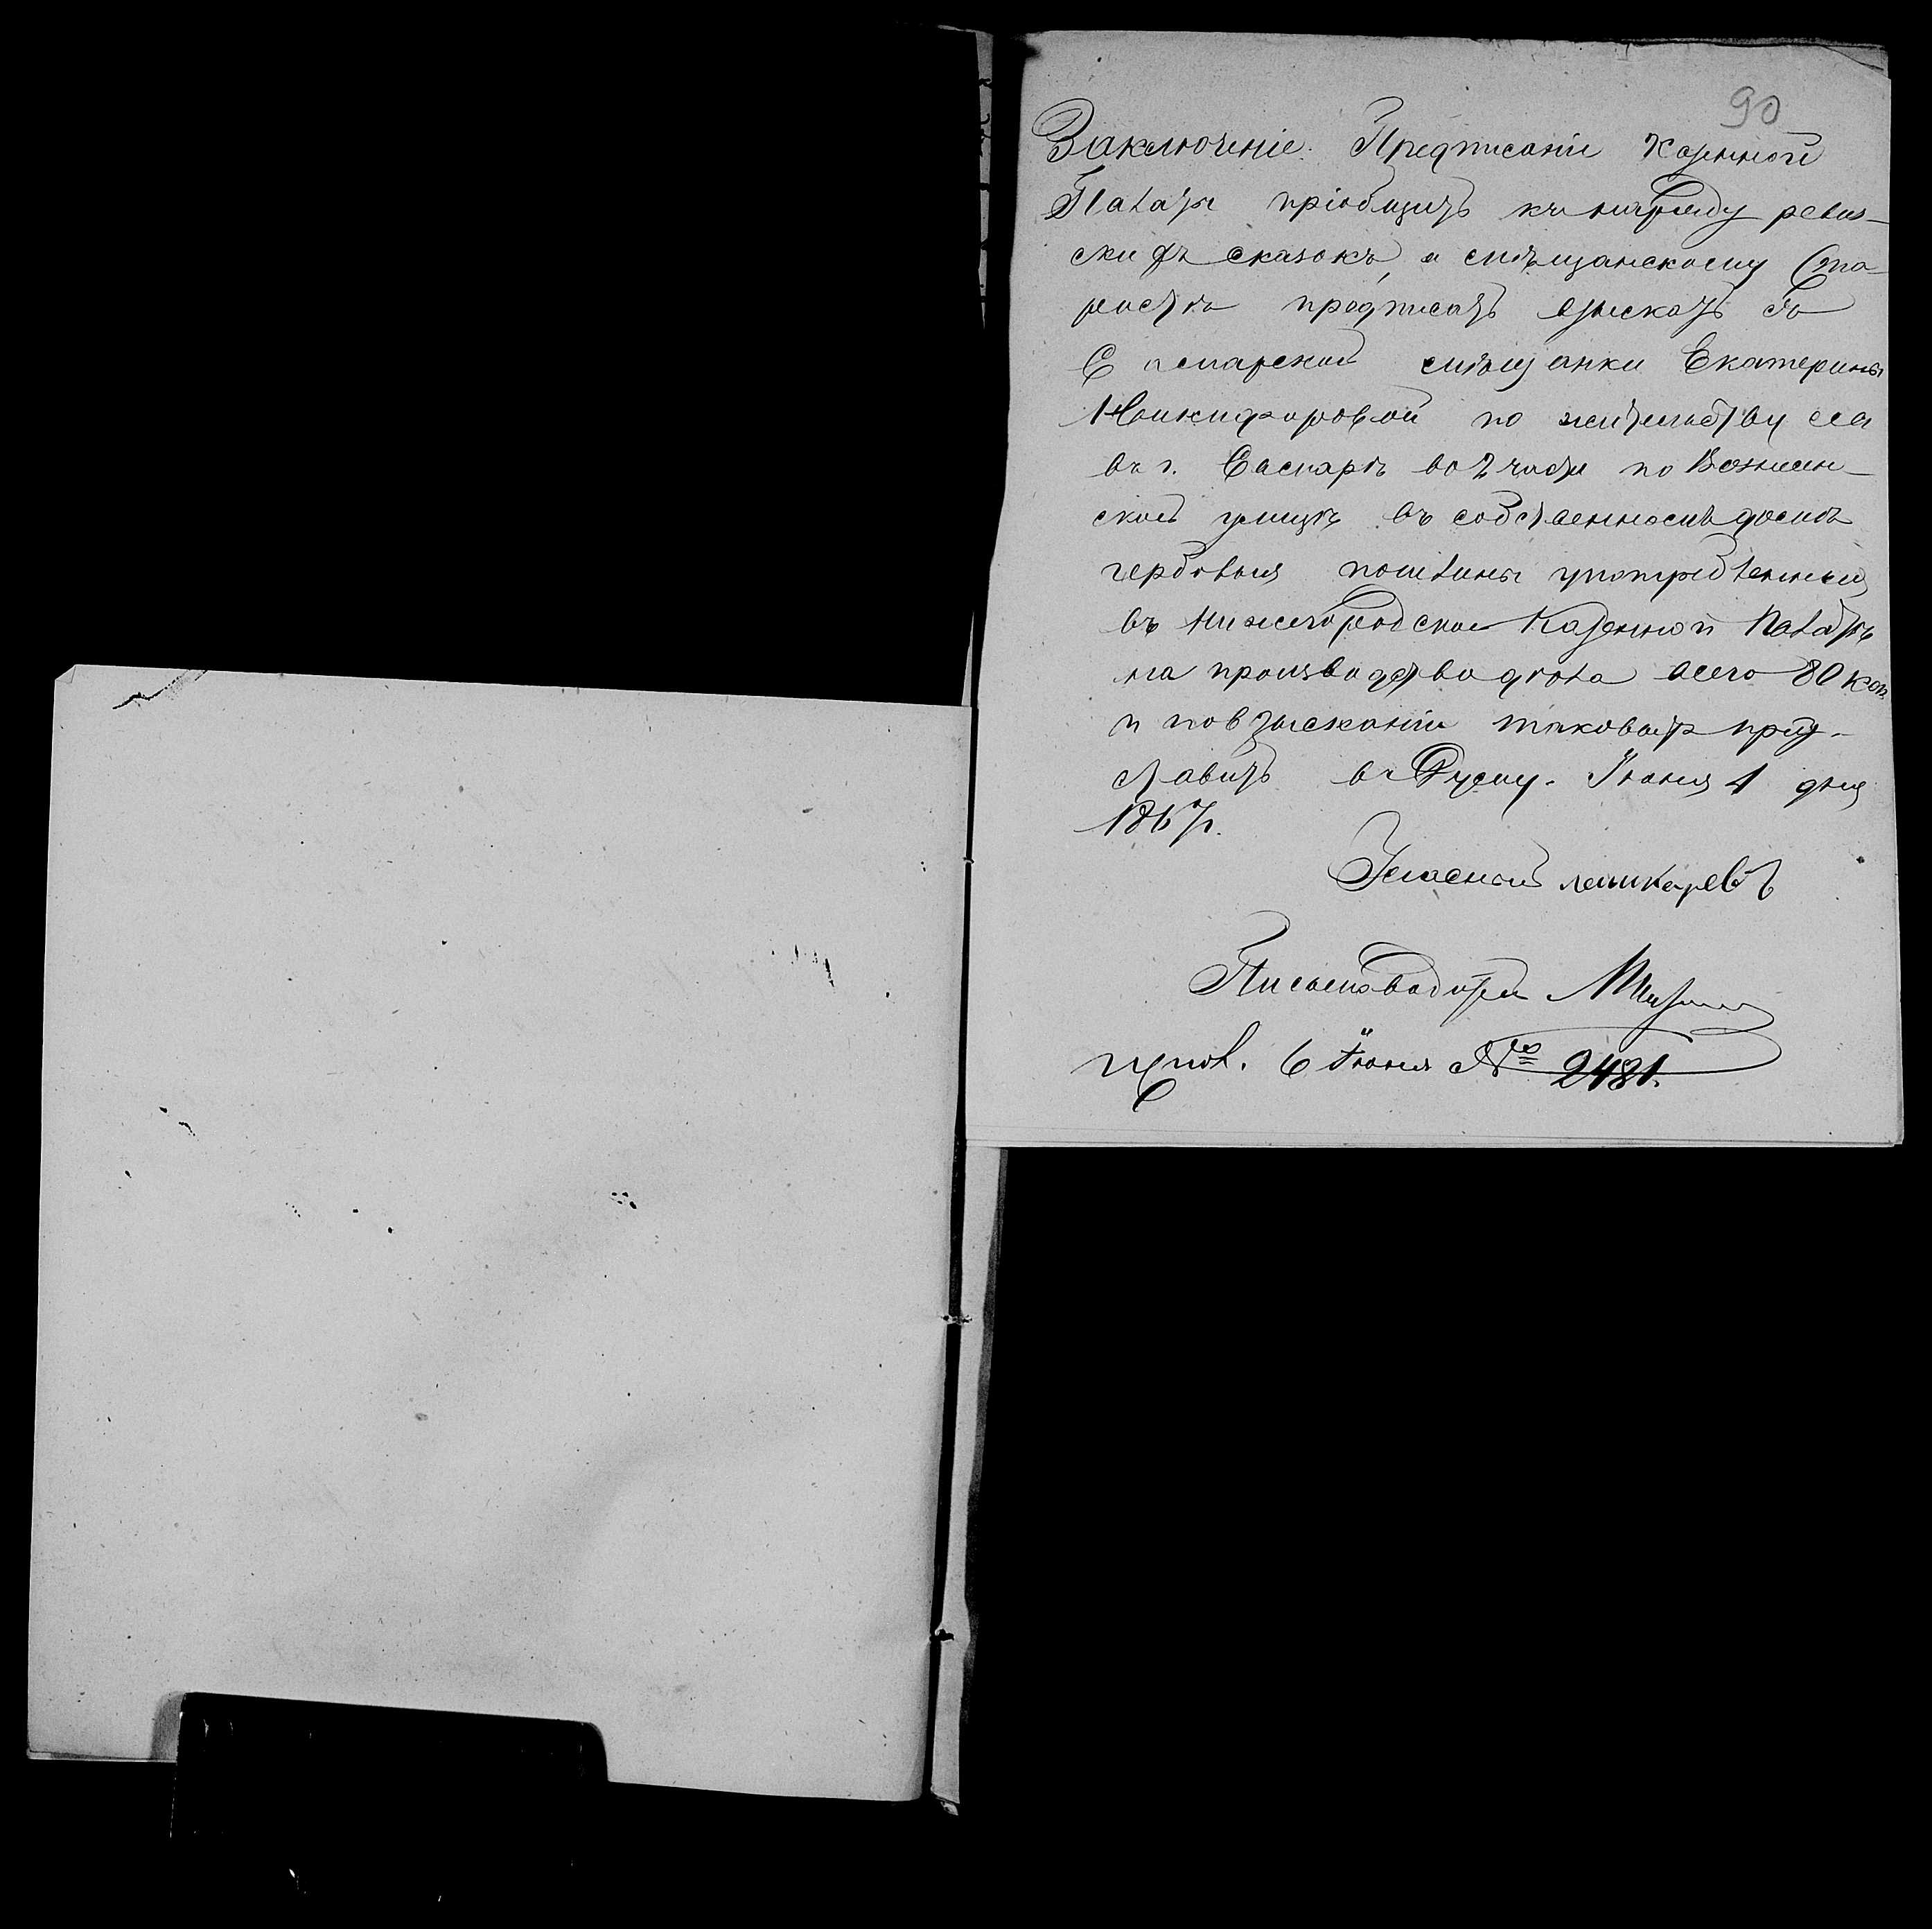 90
Заключеніе. Предписаніе Казенной
Палаты пріобщить къ наряду ревиз-
скихъ сказокъ, а мѣщанскому Ста-
ростѣ предписать взыскать съ
мѣщанки Екатерины
Никифоровой по жительству ея
въ г. во 2 части по Вознесен-
ской улицѣ въ собственномъ домѣ
гербовыя пошлины употребленныя
въ Нижегородской Казенной Палатѣ
на производство дѣла всего 80 коп.
и по взысканіи таковыхъ пред-
ставить въ Думу. Іюня 1 дня
1867 г.
Гласный
Письмоводитель
Исполн. 6 Іюня № 2481.